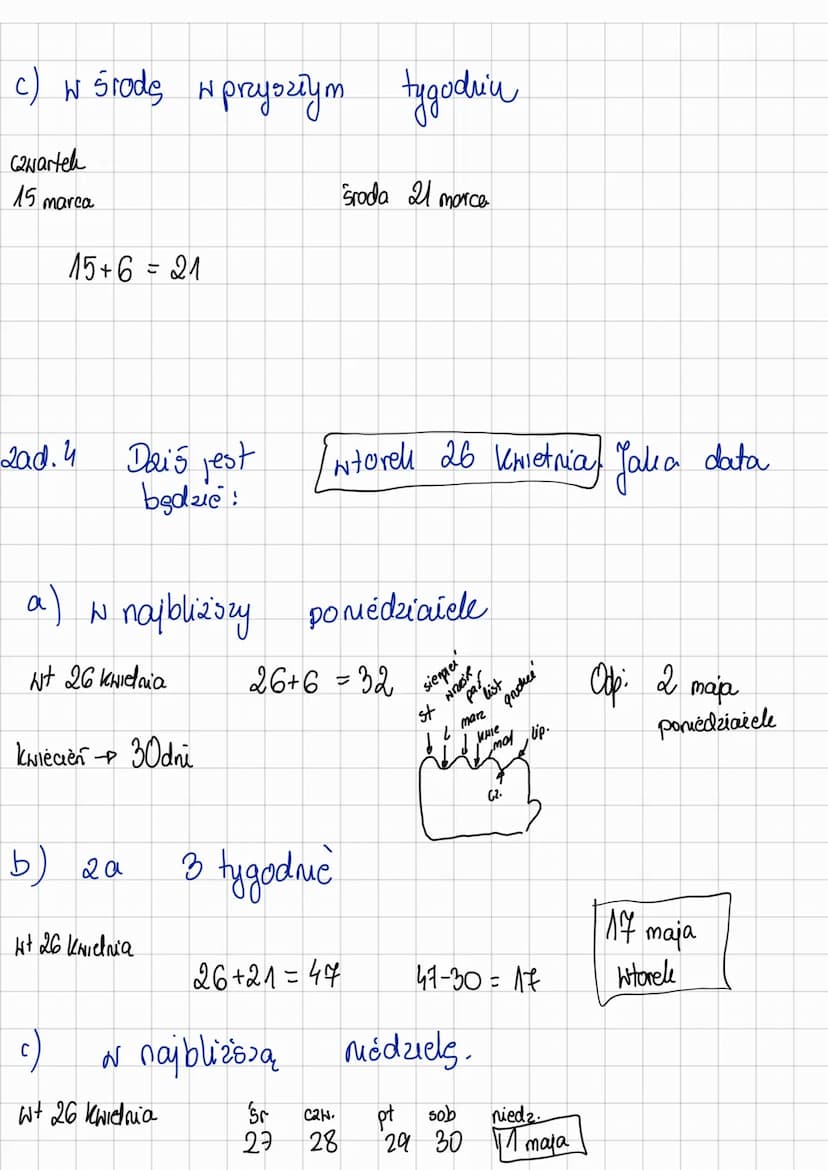 c) w środę w przyszłym tygodniu
czwartek
15 marca
środa 21 marca
15+6 = 21
zad. 4 Dziś jest wtorek 26 kwietnia. Jaka data
będzie:
a) w najbliższy poniedziałek
wt 26 kwietnia 26+6 = 32
Kwiecień → 30 dni
sierpień
wrześ
paź
list
grudzień
st
l
marz
kwie
maj
lip.
cz.
Odp: 2 maja
poniedziałek
b) za 3 tygodnie
wt 26 kwietnia
26+21 = 47 47-30 = 17
17 maja
wtorek
c) w najbliższą niedzielę.
wt 26 kwietnia śr czw. pt sob niedz.
27 28 29 30 1 maja